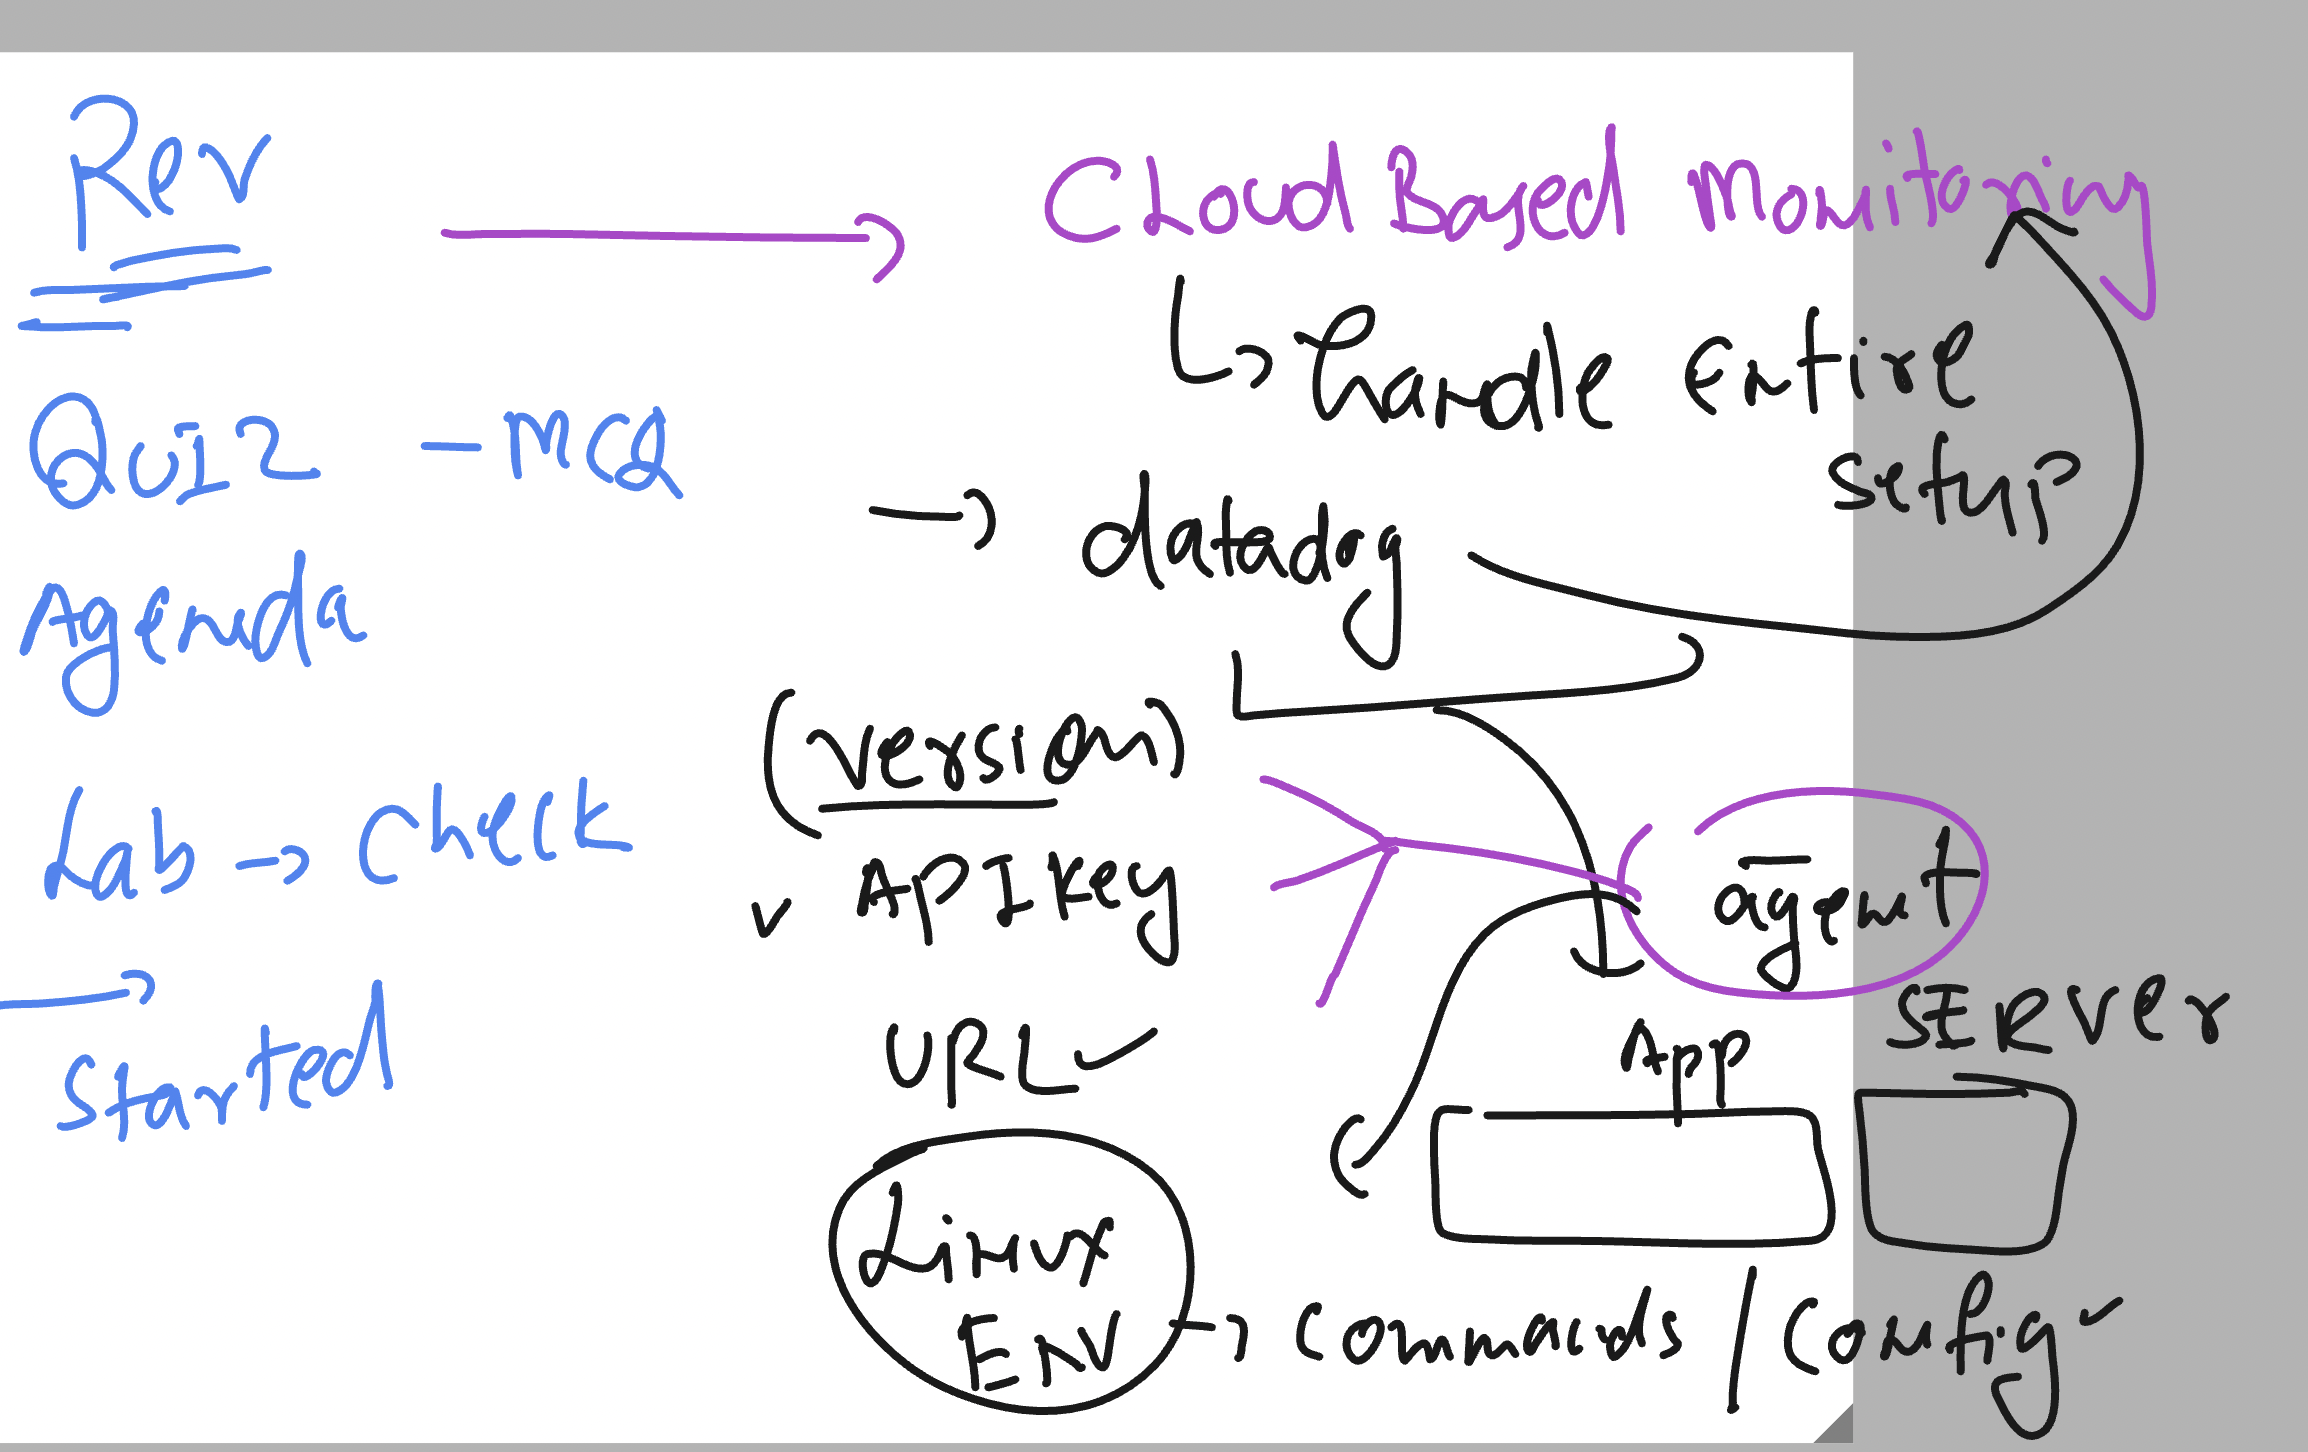 Rev
Quiz - MCQ
Agenda
Lab → Check
→
Started
Cloud Based Monitoring
↳ handle Entire
setup
→ datadog
(version)
✓ API Key
URL ✓
Linux
ENV → Commands / Config ✓
agent
App
SERVER